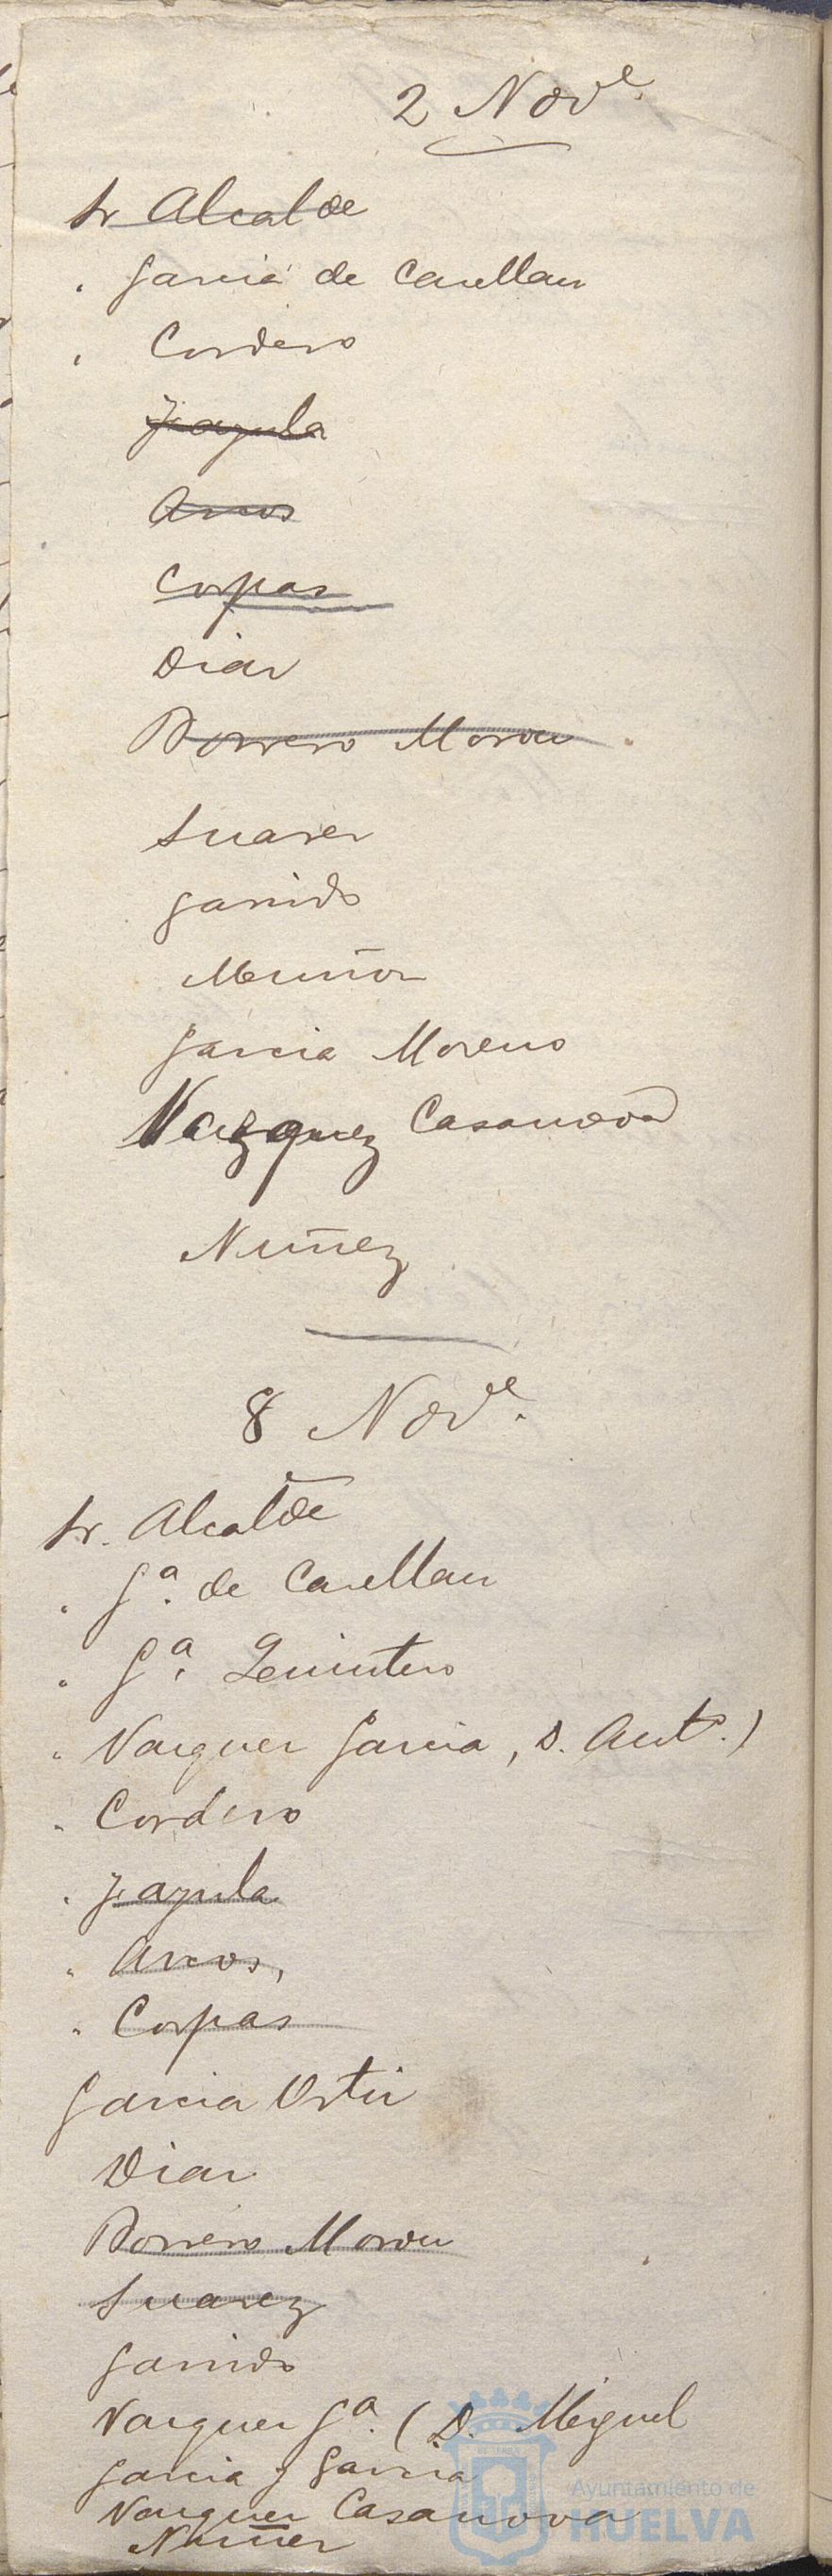 2 Nov.e
Sr Alcalde
" Garcia de Casellan
" Cordero
Jayula
Arcos
Corpas
Diaz
Borrero Moron
Suarez
Garrido
Muñoz
Garcia Moreno
Vazquez Casanova
Nuñez
8 Nov.e
Sr. Alcalde
" G.a de Casellan
" G.a Quintero
" Vazquez Garcia, D. Ant.o)
" Cordero
" Jayula
" Arcos,
" Corpas
Garcia Ortiz
Diaz
Borrero Moron
Suarez
Garrido
Vazquez G.a (D. Miguel
Garcia y Garcia
Vazquez Casanova
Nuñez
Ayuntamiento de
HUELVA